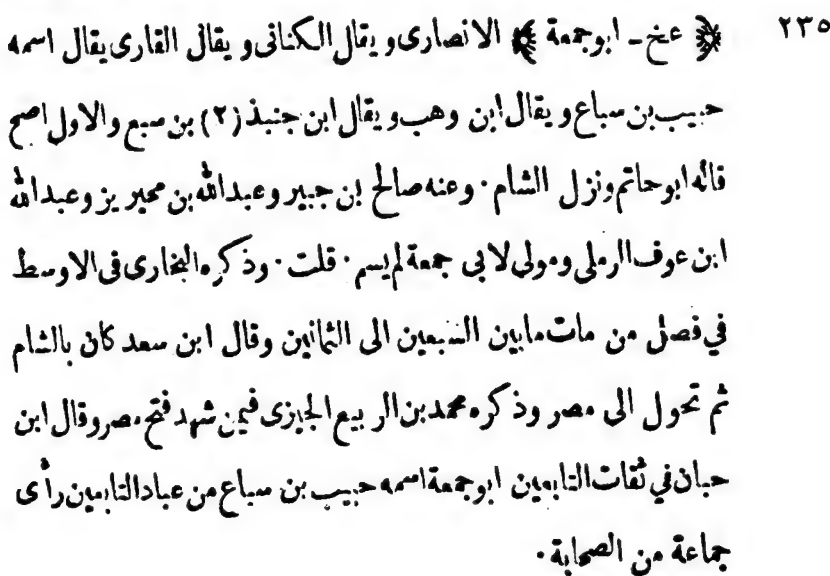 ٢٣٥ ﴿ عخ ـ ابوجمعة ﴾ الانصارى ويقال الكنانى ويقال القارى يقال اسمه
حبيب بن سباع ويقال ابن وهب ويقال ابن جنبذ (٢) بن سبع والاول اصح
قاله ابوحاتم ونزل الشام · وعنه صالح بن جبير وعبدالله بن محيريز وعبدالله
ابن عوف الرملى ومولى لابى جمعة لم يسم · قلت · وذكره البخارى فى الاوسط
في فصل من مات مابين السبعين الى الثمانين وقال ابن سعد كان بالشام
ثم تحول الى مصر وذكره محمد بن الربيع الجيزى فيمن شهد فتح مصر وقال ابن
حبان في ثقات التابعين ابوجمعة اسمه حبيب بن سباع من عباد التابعين رأى
جماعة من الصحابة ·